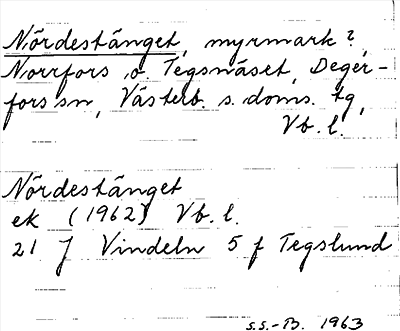 Nördestänget, myrmark?,
Norrfors o. Tegsnäset, Deger-
fors sn, Västerb. s. doms. tg,
Vb. l.
Nördestänget
ek (1962) Vb. l.
21 J Vindeln 5 f Tegslund
S.S.-B. 1963